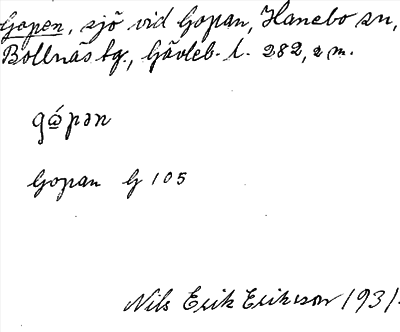 Gopen, sjö vid Gopan, Hanebo sn,
Bollnäs tg., Gävleb. l. 282, 2 m.
gǿpən
Gopan G 105
Nils Erik Erikson 1931.